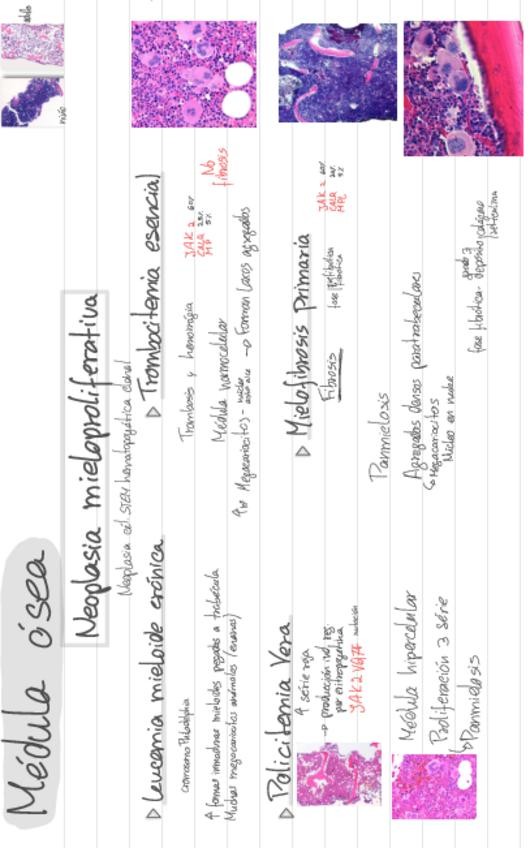 Médula ósea
niño
adulto
Neoplasia mieloproliferativa
Neoplasia cél. STEM hematopoyética clonal
▷ Leucemia mieloide crónica
cromosoma Philadelphia
↑ formas inmaduras mieloides pegados a trabécula
Muchos megacariocitos anómalos (enanos)
▷ Trombocitemia esencial
Trombosis y hemorragia
JAK 2 60%
CALR
5%
Médula normocelular
No fibrosis
Megacariocitos - núcleo → Forman laxos agregados
▷ Policitemia Vera
↑ serie roja
→ producción ind. reg.
por eritropoyetina
JAK2 V617F mutación
Médula hipercelular
Proliferación 3 série
↳ Panmielosis
▷ Mielofibrosis primaria
Fibrosis
fase prefibrótica
fibrótica
JAK 2 60%
CALR
MPL 5%
Panmielosis
Agregados densos paratrabeculares
↳ Megacariocitos
Núcleo en nube
fase fibrótica - depósito colágeno
grado 3